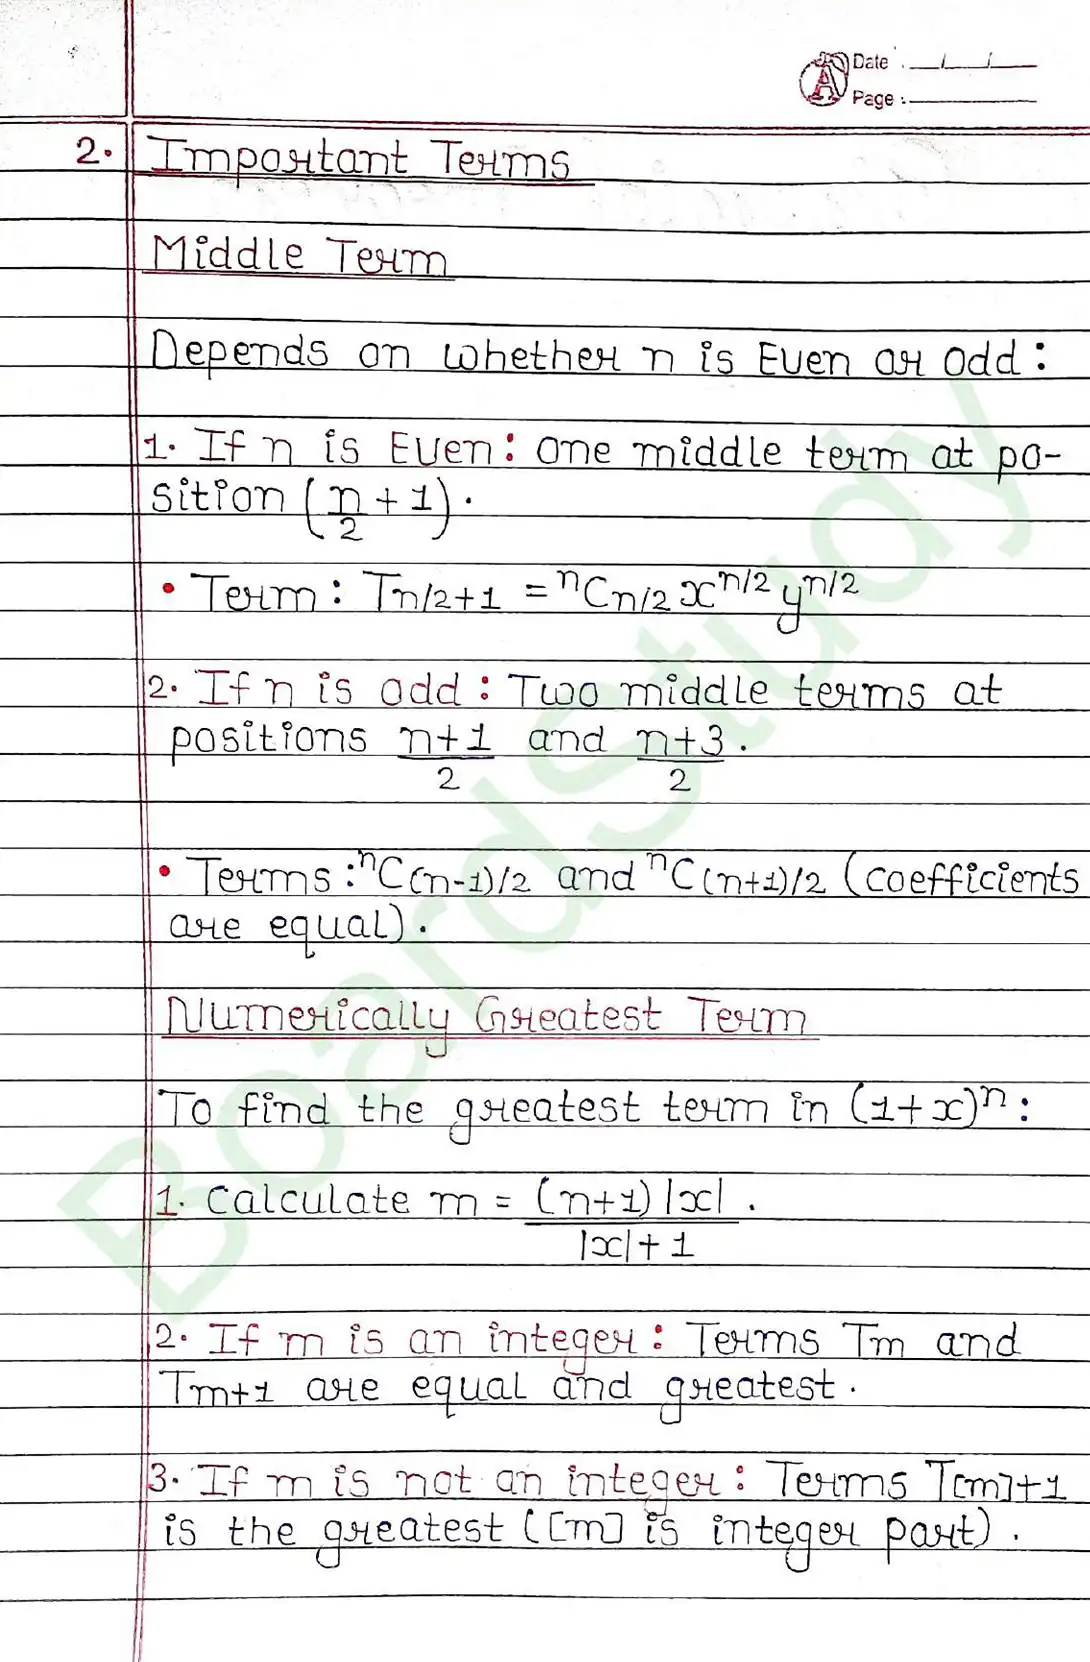 Date : __/__/__
Page :
2. Important Terms
Middle Term
Depends on whether n is Even or odd :
1. If n is Even : one middle term at po-
sition (n/2 + 1).
• Term : Tn/2+1 = ⁿCn/2 xⁿ/² yⁿ/²
2. If n is odd : Two middle terms at
positions n+1/2 and n+3/2.
• Terms : ⁿC(n-1)/2 and ⁿC(n+1)/2 (coefficients
are equal).
Numerically Greatest Term
To find the greatest term in (1+x)ⁿ :
1. Calculate m = (n+1)|x| / |x|+1.
2. If m is an integer : Terms Tm and
Tm+1 are equal and greatest.
3. If m is not an integer : Terms T[m]+1
is the greatest ([m] is integer part).
BoardStudy